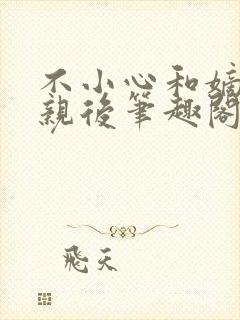 不小心和嫡
親後筆趣閣
飛天